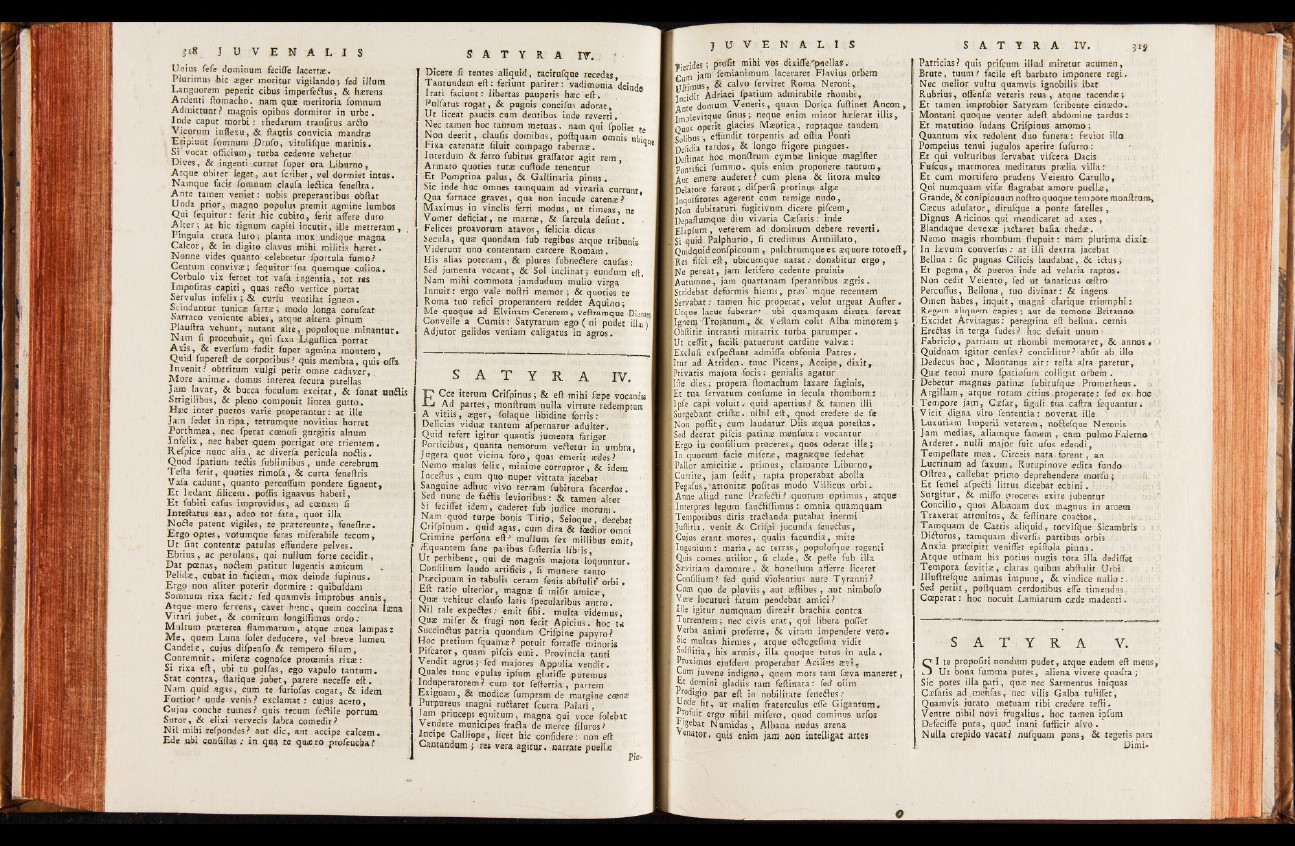 318 JUVENALIS
Unius sese dominum fecisse lacertæ.
Plurimus hic æger moritur vigilando; sed illum
Languorem peperit cibus imperfectus, & hærens
Ardenti stomacho. nam quæ meritoria somnum
Admittunt? magnis opibus dormitur in urbe.
Inde caput morbi: rhedarum transitus arcto
Vicorum inflexu, & stantis convicia mandræ
Eripiunt somnum Druso, vitulisque marinis.
Si vocat officium, turba cedente vehetur
Dives, & ingenti curret super ora Liburno,
Atque obiter leget, aut scribet, vel dormiet intus.
Namque facit somnum clausa lectica fenestra.
Ante tamen veniet: nobis properantibus obstat
Unda prior, magno populus premit agmine lumbos
Qui sequitur: ferit hic cubito, ferit assere duro
Alter; at hic tignum capiti incutit, ille metretam,
Pinguia crura luto; planta mox undique magna
Calcor, & in digito clavus mihi militis hæret.
Nonne vides quanto celebretur sportula fumo?
Centum convivæ; sequitur sua quemque culina.
Corbulo vix ferret tot vasa ingentia, tot res
Impositas capiti, quas recto vertice portat
Servulus infelix; & cursu ventilat ignem.
Scinduntur tunicæ sartæ; modo longa coruscat
Sarraco veniente abies, atque altera pinum
Plaustra vehunt, nutant alte, populoque minantur.
Nam si procubuit, qui saxa Ligustica portat
Axis, & eversum fudit super agmina montem,
Quid superest de corporibus? quis membra, quis ossa
Invenit? obtritum vulgi perit omne cadaver,
More animæ. domus interea secura patellas
Jam lavat, & bucca foculum excitat, & sonat unctis
Strigilibus, & pleno componit lintea gutto.
Hæc inter pueros varie properantur: at ille
Jam sedet in ripa, tetrumque novitius horret
Porthmea, nec sperat cœnosi gurgitis alnum
Infelix, nec habet quem porrigat ore trientem.
Respice nunc alia, ac diversa pericula noctis.
Quod spatium tectis sublimibus, unde cerebrum
Testa ferit, quoties rimosa, & curta fenestris
Vasa cadunt, quanto percussum pondere signent,
Et lædant silicem. possis ignavus haberi,
Et subiti casus improvidus, ad cœnam si
Intestatus eas, adeo tot fata, quot illa
Nocte patent vigiles, te prætereunte, fenestræ.
Ergo optes, votumque feras miserabile tecum,
Ut sint contentæ patulas effundere pelves.
Ebrius, ac petulans, qui nullum forte cecidit,
Dat pœnas, noctem patitur lugentis amicum
Pelidæ, cubat in faciem, mox deinde supinus.
Ergo non aliter poterit dormire: quibusdam
Somnum rixa facit: sed quamvis improbus annis,
Atque mero fervens, cavet hunc, quem coccina læna
Vitari jubet, & comitum longissimus ordo:
Multum præterea flammarum, atque ænea lampas:
Me, quem Luna solet deducere, vel breve lumen
Candelæ, cujus dispenso & tempero filum,
Contemnit. miseræ cognosce proœmia rixæ:
Si rixa est, ubi tu pulsas, ego vapulo tantum.
Stat contra, starique jubet, parere necesse est.
Nam quid agas, cum te furiosus cogat, & idem
Fortior? unde venis? exclamat: cujus aceto,
Cujus conche tumes? quis tecum sectile porrum
Sutor, & elixi vervecis labra comedit?
Nil mihi respondes? aut dic, aut accipe calcem.
Ede ubi consistas: in qua te quæro proseucha?
SATYRA IV.
Dicere si tentes aliquid, tacitusque recedas,
Tantundem est: feriunt pariter: vadimonia deinde
Irati faciunt: libertas pauperis hæc est.
Pulsatus rogat, & pugnis concisus adorat,
Ut liceat paucis cum dentibus inde reverti.
Nec tamen hoc tantum metuas. nam qui spoliet te
Non deerit, clausis domibus, postquam omnis ubique
Fixa catenatæ siluit compago tabernæ.
Interdum & ferro subitus grassator agit rem,
Armato quoties tutæ custode tenentur
Et Pomptina palus, & Gallinaria pinus.
Sic inde huc omnes tamquam ad vivaria currunt,
Qua fornace graves, qua non incude catenæ?
Maximus in vinclis ferri modus, ut timeas, ne
Vomer deficiat, ne marræ, & sarcula desint.
Felices proavorum atavos, felicia dicas
Secula, quæ quondam sub regibus atque tribunis
Viderunt uno contentam carcere Romam.
His alias poteram, & plures subnectere causas:
Sed jumenta vocant, & Sol inclinat; eundum est.
Nam mihi commota jamdudum mulio virga
Innuit: ergo vale nostri memor; & quoties te
Roma tuo refici properantem reddet Aquino;
Me quoque ad Elvinam Cererem, vestramque Dianam
Convelle a Cumis: Satyrarum ego (ni pudet illas)
Adjutor gelidos veniam caligatus in agros.
SATYRA IV.
ECce iterum Crispinus; & est mihi sæpe vocandus
Ad partes, monstrum nulla virtute redemptum
A vitiis, æger, solaque libidine fortis:
Delicias viduæ tantum aspernatur adulter.
Quid refert igitur quantis jumenta fatiget
Porticibus, quanta nemorum vectetur in umbra,
Jugera quot vicina foro, quas emerit ædes?
Nemo malus felix, minime corruptor, & idem
Incestus, cum quo nuper vittata jacebat
Sanguine adhuc vivo terram subitura sacerdos.
Sed nunc de factis levioribus: & tamen alter
Si fecisset idem, caderet sub judice morum.
Nam quod turpe bonis Titio, Seioque, decebat
Crispinum. quid agas, cum dira & fœdior omni
Crimine persona est? mullum sex millibus emit,
Æquantem sane paribus sestertia libris,
Ut perhibent, qui de magnis majora loquuntur.
Consilium laudo artificis, si munere tanto
Præcipuam in tabulis ceram senis abstulit orbi.
Est ratio ulterior, magnæ si misit amicæ,
Quæ vehitur clauso latis specularibus antro.
Nil tale expectes: emit sibi. multa videmus,
Quæ miser & frugi non fecit Apicius. hoc tu
Succinctus patria quondam Crispine papyro?
Hoc pretium squamæ? potuit fortasse minoris
Piscator, quam piscis emi. Provincia tanti
Vendit agros; sed majores Appulia vendit.
Quales tunc epulas ipsum glutisse putemus
Induperatorem? cum tot sestertia, partem
Exiguam, & modicæ sumptam de margine cœnæ
Purpureus magni ructaret scurra Palati,
Jam princeps equitum, magna qui voce solebat
Vendere municipes fracta de merce siluros?
Incipe Calliope, licet hic considere: non est
Cantandum; res vera agitur. narrate puellæ
Pie-
JUVENALIS
Pierides; prosit mihi vos dixisse puellas.
Cum jam semianimum laceraret Flavius orbem
Ultimus, & calvo serviret Roma Neroni,
Incidit Adriaci spatium admirabile rhombi,
Ante domum Veneris, quam Dorica sustinet Ancon,
Implevitque sinus; neque enim minor hæserat illis,
Quos operit glacies Mæotica, ruptaque tandem
Solibus, effundit torpentis ad ostia Ponti
Desidia tardos, & longo frigore pingues.
Destinat hoc monstrum cymbæ linique magister
Pontifici summo. quis enim proponere tantum,
Aut emere auderet? cum plena & litora multo
Delatore forent; dispersi protinus algæ
Inquisitores agerent cum remige nudo,
Non dubitaturi fugitivum dicere piscem,
Depastumque diu vivaria Cæsaris: inde
Elapsum, veterem ad dominum debere reverti.
Si quid Palphurio, si credimus Armillato,
Quidquid conspicuum, pulchrumque ex æquore toto est,
Res fisci est, ubicumque natat: donabitur ergo,
Ne pereat, jam letifero cedente pruinis
Autumno, jam quartanam sperantibus ægris.
Stridebat deformis hiems, prædamque recentem
Servabat: tamen hic properat, velut urgeat Auster.
Utque lacus suberant ubi quamquam diruta servat
Ignem Trojanum, & Vestam colit Alba minorem;
Obstitit intranti miratrix turba parumper.
Ut cessit, facili patuerunt cardine valvæ:
Exclusi exspectant admissa obsonia Patres.
Itur ad Atriden. tunc Picens, Accipe, dixit,
Privatis majora focis: genialis agatur
Iste dies; propera stomachum laxare saginis,
Et tua servatum consume in secula rhombum:
Ipse capi voluit. quid apertius? & tamen illi
Surgebant cristæ. nihil est, quod credere de se
Non possit, cum laudatur Diis æqua potestas.
Sed deerat piscis patinæ mensura: vocantur
Ergo in consilium proceres, quos oderat ille;
In quorum facie miseræ, magnæque sedebat
Pallor amicitiæ. primus, clamante Liburno,
Currite, jam sedit, rapta properabat abolla
Pegasus, attonitæ positus modo Villicus urbi.
Anne aliud tunc Præfecti? quorum optimus, atque
Interpres legum sanctissimus: omnia quamquam
Temporibus diris tractanda putabat inermi
Justitia. venit & Crispi jucunda senectus,
Cujus erant mores, qualis facundia, mite
Ingenium: maria, ac terras, populosque regenti
Quis comes utilior, si clade, & peste sub illa
Sævitiam damnare, & honestum afferre liceret
Consilium? sed quid violentius aure Tyranni?
Cum quo de pluviis, aut æstibus, aut nimboso
Vere locuturi fatum pendebat amici?
Ille igitur numquam direxit brachia contra
Torrentem; nec civis erat, qui libera posset
Verba animi proferre, & vitam impendere vero.
Sic multas hiemes, atque octogesima vidit
Solstitia, his armis, illa quoque tutus in aula.
Proximus ejusdem properabat Acilius ævi,
Cum juvene indigno, quem mors tam sæva maneret,
Et domini gladiis tam festinata: sed olim
Prodigio par est in nobilitate senectus:
Unde fit, ut malim fraterculus esse Gigantum.
Profuit ergo nihil misero, quod cominus ursos
Figebat Numidas, Albana nudus arena
Venator. quis enim jam non intelligat artes
SATYRA IV. 319
Patricias? quis priscum illud miretur acumen,
Brute, tuum? facile est barbato imponere regi.
Nec melior vultu quamvis ignobilis ibat
Rubrius, offensæ veteris reus, atque tacendæ;
Et tamen improbior Satyram scribente cinædo.
Montani quoque venter adest abdomine tardus:
Et matutino sudans Crispinus amomo;
Quantum vix redolent duo funera: sævior illo
Pompeius tenui jugulos aperire susurro:
Et qui vulturibus servabat viscera Dacis
Fuscus, marmorea meditatus prælia villa:
Et cum mortifero prudens Veiento Catullo,
Qui numquam visæ flagrabat amore puellæ,
Grande, & conspicuum nostro quoque tempore monstrum,
Cæcus adulator, dirusque a ponte satelles,
Dignus Aricinos qui mendicaret ad axes,
Blandaque devexæ jactaret basia rhedæ.
Nemo magis rhombum stupuit: nam plurima dixit
In lævum conversus: at illi dextra jacebat
Bellua: sic pugnas Cilicis laudabat, & ictus;
Et pegma, & pueros inde ad velaria raptos.
Non cedit Veiento, sed ut fanaticus œstro
Percussus, Bellona, tuo divinat: & ingens
Omen habes, inquit, magni clarique triumphi:
Regem aliquem capies; aut de temone Britanno
Excidet Arviragus: peregrina est bellua. cernis
Erectas in terga sudes? hoc defuit unum
Fabricio, patriam ut rhombi memoraret, & annos.
Quidnam igitur censes? conciditur? absit ab illo
Dedecus hoc, Montanus ait: testa alta paretur,
Quæ tenui muro spatiosum colligat orbem.
Debetur magnus patinæ subitusque Prometheus.
Argillam, atque rotam citius properate: sed ex hoc
Tempore jam, Cæsar, figuli tua castra sequantur.
Vicit digna viro sententia: noverat ille
Luxuriam Imperii veterem, noctesque Neronis
Jam medias, aliamque famem, cum pulmo Falerno
Arderet. nulli major fuit usus edendi,
Tempestate mea. Circeis nata forent, an
Lucrinum ad saxum, Rutupinove ædita fundo
Ostrea, callebat primo deprehendere morsu;
Et semel aspecti litus dicebat echini.
Surgitur, & misso proceres exire jubentur
Concilio, quos Albanam dux magnus in arcem
Traxerat attonitos, & festinare coactos,
Tamquam de Cattis aliquid, torvisque Sicambris
Dicturus, tamquam diversis partibus orbis
Anxia præcipiti venisset epistola pinna.
Atque utinam his potius nugis tota illa dedisset
Tempora sævitiæ, claras quibus abstulit Urbi
Illustresque animas impune, & vindice nullo:
Sed periit, postquam cerdonibus esse timendus
Cœperat: hoc nocuit Lamiarum cæde madenti.
SATYRA V.
SI te propositi nondum pudet, atque eadem est mens,
Ut bona summa putes, aliena vivere quadra;
Sic potes illa pati, quæ nec Sarmentus iniquas
Cæsaris ad mensas, nec vilis Galba tulisset,
Quamvis jurato metuam tibi credere testi.
Ventre nihil novi frugalius. hoc tamen ipsum
Defecisse puta, quod inani sufficit alvo.
Nulla crepido vacat? nusquam pons, & tegetis pars
Dimi-